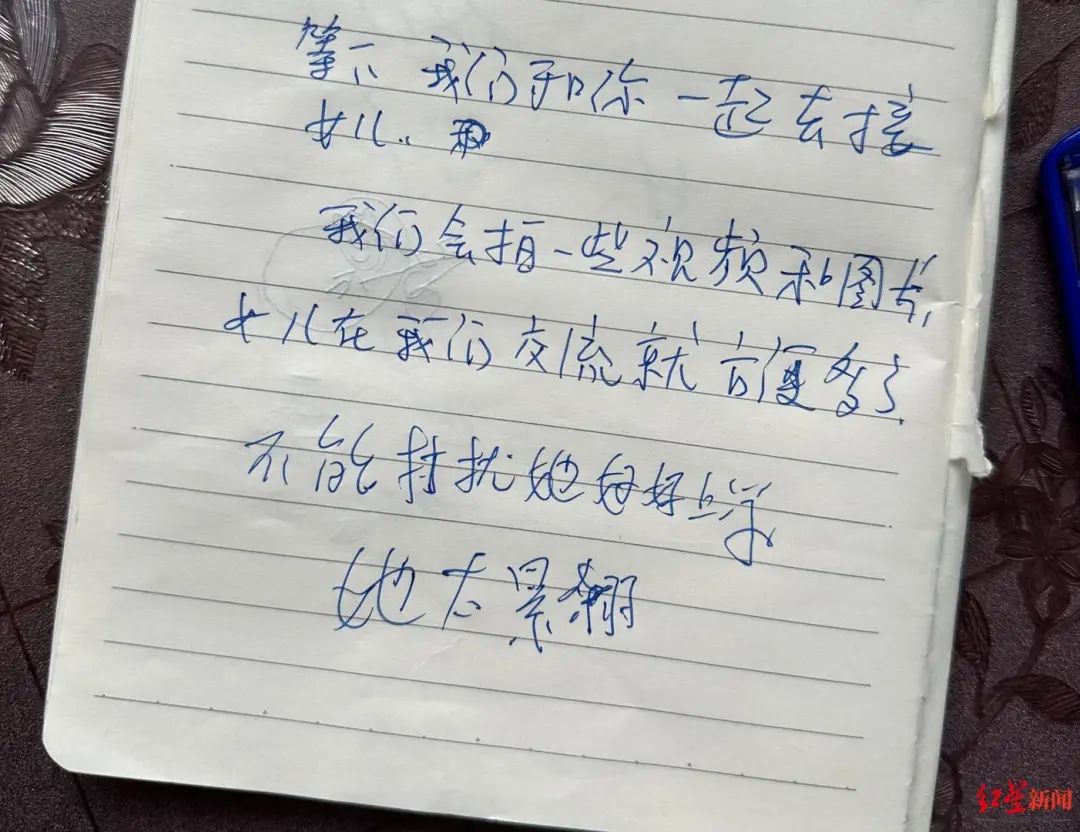 等下 我们和你一起去接
女儿..
我们会拍一些视频和图片,
女儿在我们交流就方便多了
不能打扰她好好上学
她太累
红星新闻